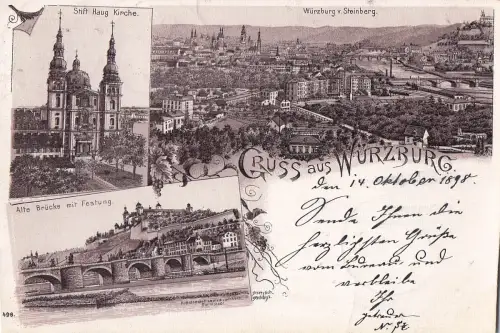 Stift Haug Kirche.
Würzburg v. Steinberg.
GRUSS AUS WÜRZBURG.
Alte Brücke mit Festung.
496.
den 14. Oktober 1898.
Sende Ihnen die
herzlichsten Grüße
vom und
verbleibe
Ihr
getreuer